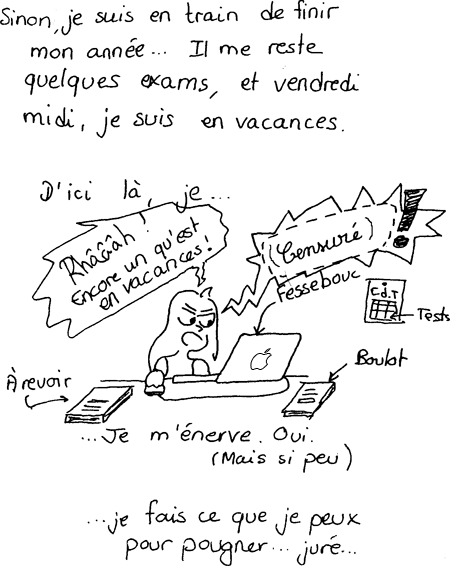 Sinon, je suis en train de finir
mon année... Il me reste
quelques exams, et vendredi
midi, je suis en vacances.
D'ici là, je...
Rhâââh!
Encore un qu'est
en vacances!
(Censuré)!
Fessebouc
C.d.T
Tests
À revoir
Boulot
...Je m'énerve. Oui.
(Mais si peu)
...je fais ce que je peux
pour pougner... juré...